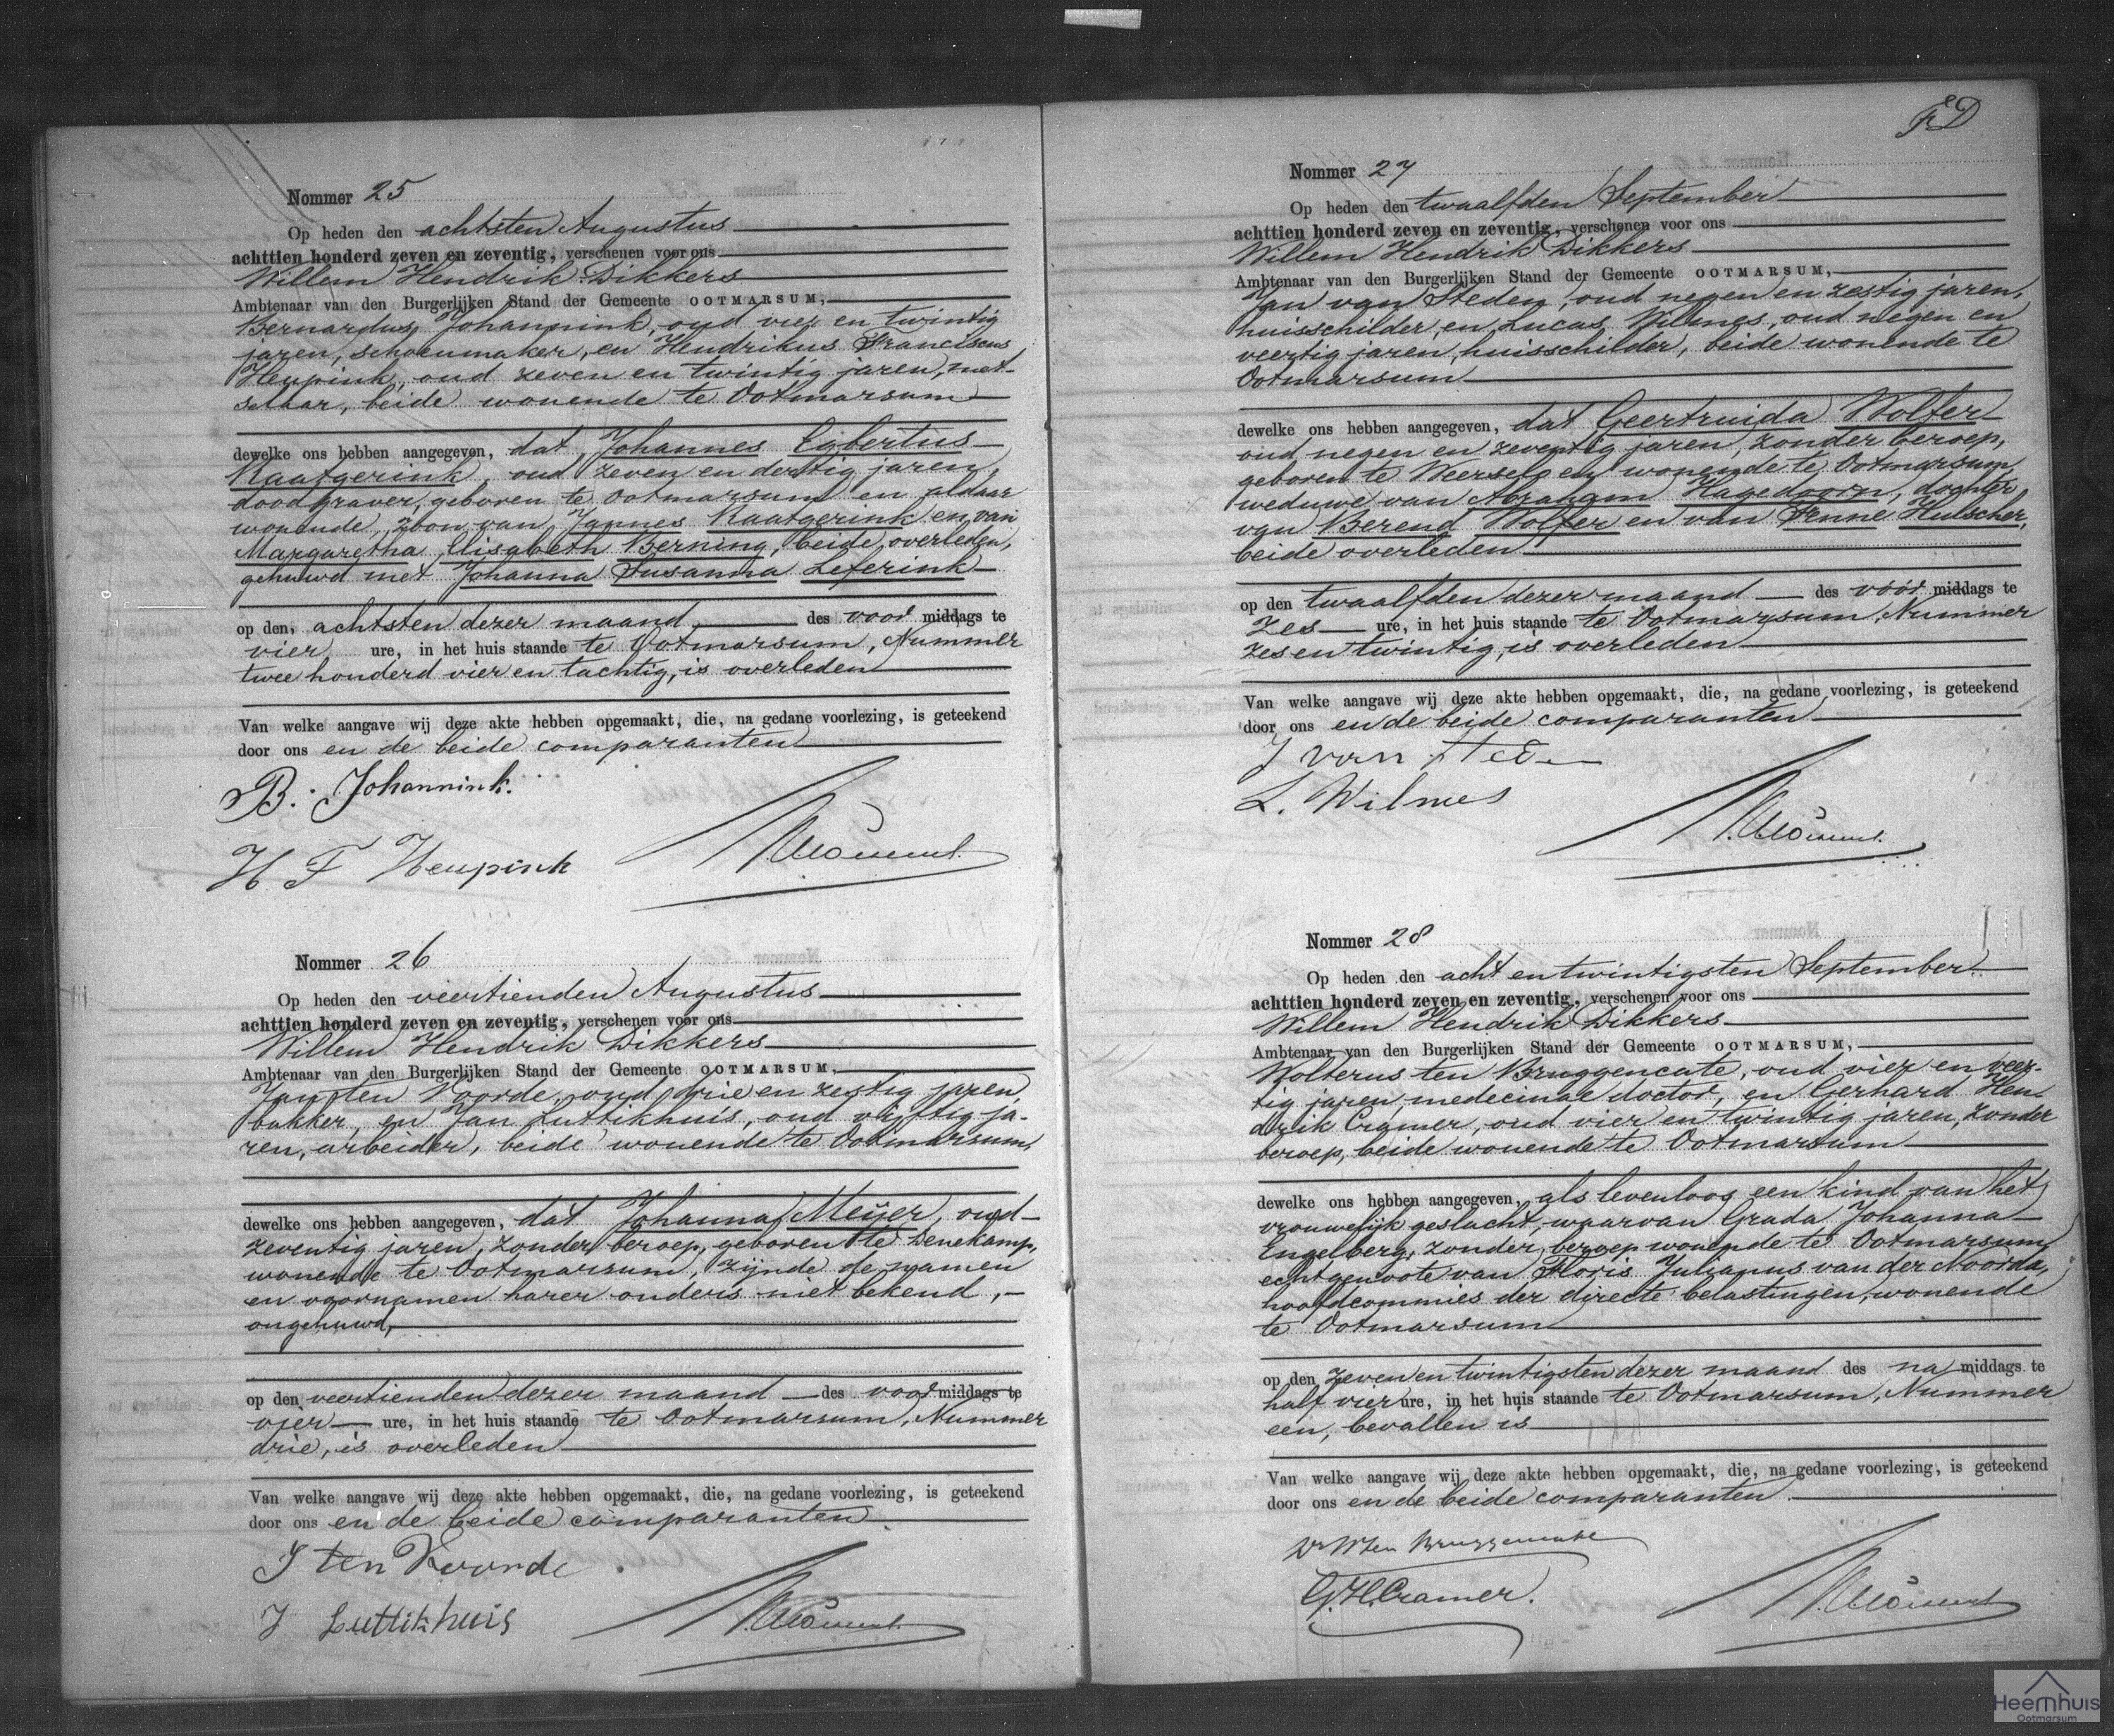 Nommer 25
Op heden den achtsten Augustus
achttien honderd zeven en zeventig, verschenen voor ons
Willem Hendrik Dikkers
Ambtenaar van den Burgerlijken Stand der Gemeente OOTMARSUM,
Bernardus Johannink, oud vier en twintig
jaren, schoenmaker, en Hendrikus Franciscus
Heupink, oud zeven en twintig jaren, met-
selaar, beide wonende te Ootmarsum
dewelke ons hebben aangegeven, dat Johannes Egbertus
Raatgerink, oud zeven en dertig jaren,
doodgraver, geboren te Ootmarsum en aldaar
wonende, zoon van Jannes Raatgerink en van
Margaretha Elisabeth Berning, beide overleden,
gehuwd met Johanna Susanna Leferink
op den achtsten dezer maand des voor middags te
vier ure, in het huis staande te Ootmarsum, Nummer
twee honderd vier en tachtig, is overleden
Van welke aangave wij deze akte hebben opgemaakt, die, na gedane voorlezing, is geteekend
door ons en de beide comparanten
B. Johannink.
H F Heupink
Nommer 26
Op heden den veertienden Augustus
achttien honderd zeven en zeventig, verschenen voor ons
Willem Hendrik Dikkers
Ambtenaar van den Burgerlijken Stand der Gemeente OOTMARSUM,
Jan ten Voorde, oud drie en zestig jaren,
bakker, en Jan Luttikhuis, oud vijftig ja-
ren, arbeider, beide wonende te Ootmarsum,
dewelke ons hebben aangegeven, dat Johanna Meijer, oud
zeventig jaren, zonder beroep, geboren te Denekamp,
wonende te Ootmarsum, zijnde de namen
en voornamen harer ouders niet bekend,
ongehuwd,
op den veertienden dezer maand des voor middags te
vier ure, in het huis staande te Ootmarsum, Nummer
drie, is overleden
Van welke aangave wij deze akte hebben opgemaakt, die, na gedane voorlezing, is geteekend
door ons en de beide comparanten
J ten Voorde
J Luttikhuis
Nommer 27
Op heden den twaalfden September
achttien honderd zeven en zeventig, verschenen voor ons
Willem Hendrik Dikkers
Ambtenaar van den Burgerlijken Stand der Gemeente OOTMARSUM,
Jan van Steden, oud negen en zestig jaren,
huisschilder, en Lucas Wilmes, oud negen en
veertig jaren, huisschilder, beide wonende te
Ootmarsum
dewelke ons hebben aangegeven, dat Geertruida Wolfer
oud negen en zeventig jaren, zonder beroep,
geboren te Weerselo en wonende te Ootmarsum,
weduwe van Abraham Hagedoorn, dochter
van Berend Wolfer en van Fenne Hulscher,
beide overleden
op den twaalfden dezer maand des vóór middags te
zes ure, in het huis staande te Ootmarsum, Nummer
zes en twintig, is overleden
Van welke aangave wij deze akte hebben opgemaakt, die, na gedane voorlezing, is geteekend
door ons en de beide comparanten
J van Steden
L. Wilmes
Nommer 28
Op heden den acht en twintigsten September
achttien honderd zeven en zeventig, verschenen voor ons
Willem Hendrik Dikkers
Ambtenaar van den Burgerlijken Stand der Gemeente OOTMARSUM,
Wolterus ten Bruggencate, oud vier en veer-
tig jaren, medecinae doctor, en Gerhard Hen-
drik Cramer, oud vier en twintig jaren, zonder
beroep, beide wonende te Ootmarsum
dewelke ons hebben aangegeven, als levenloos een kind van het
vrouwelijk geslacht, waarvan Grada Johanna
Engelberg, zonder beroep wonende te Ootmarsum,
echtgenoote van Floris Julianus van der Noorda,
hoofdcommies der directe belastingen, wonende
te Ootmarsum
op den zeven en twintigsten dezer maand des na middags te
half vier ure, in het huis staande te Ootmarsum, Nummer
een, bevallen is
Van welke aangave wij deze akte hebben opgemaakt, die, na gedane voorlezing, is geteekend
door ons en de beide comparanten
Dr W ten Bruggencate
G.H. Cramer.
Heemhuis
Ootmarsum